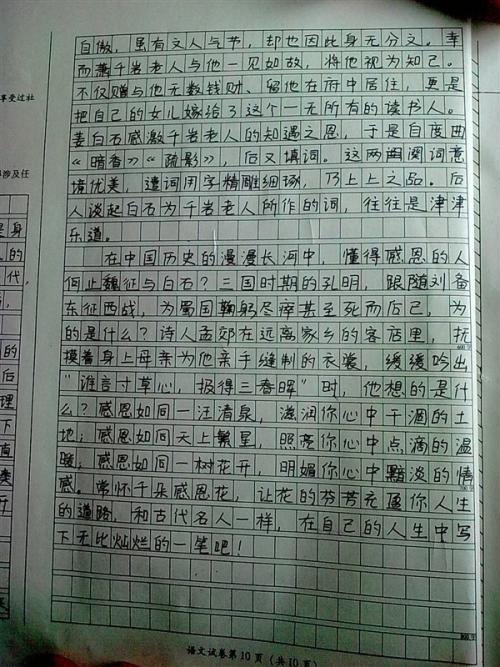 自傲，虽有文人气节，却也因此身无分文。幸
而萧千岩老人与他一见如故，将他视为知己。
不仅赠与他无数钱财、留他在府中居住，更是
把自己的女儿嫁给了这个一无所有的读书人。
姜白石感激千岩老人的知遇之恩，于是自度曲
《暗香》《疏影》，后又填词。这两阕词意
境优美，遣词用字精雕细琢，乃上上之品。后
人谈起白石为千岩老人所作的词，往往是津津
乐道。
在中国历史的漫漫长河中，懂得感恩的人
何止魏征与白石？三国时期的孔明，跟随刘备
东征西战，为蜀国鞠躬尽瘁甚至死而后已，为
的是什么？诗人孟郊在远离家乡的客店里，抚
摸着身上母亲为他亲手缝制的衣裳，缓缓吟出
“谁言寸草心，报得三春晖”时，他想的是什
么？感恩如同一汪清泉，滋润你心中干涸的土
地；感恩如同天上繁星，照亮你心中点滴的温
暖；感恩如同一树花开，明媚你心中黯淡的情
感。常怀千朵感恩花，让花的芬芳充盈你人生
的道路，和古代名人一样，在自己的人生中写
下无比灿烂的一笔吧！
语文试卷第10页（共10页）
享受过社
涉及任
是身
人的
代，
的
后
理
下
直
奏
开
600字
800字